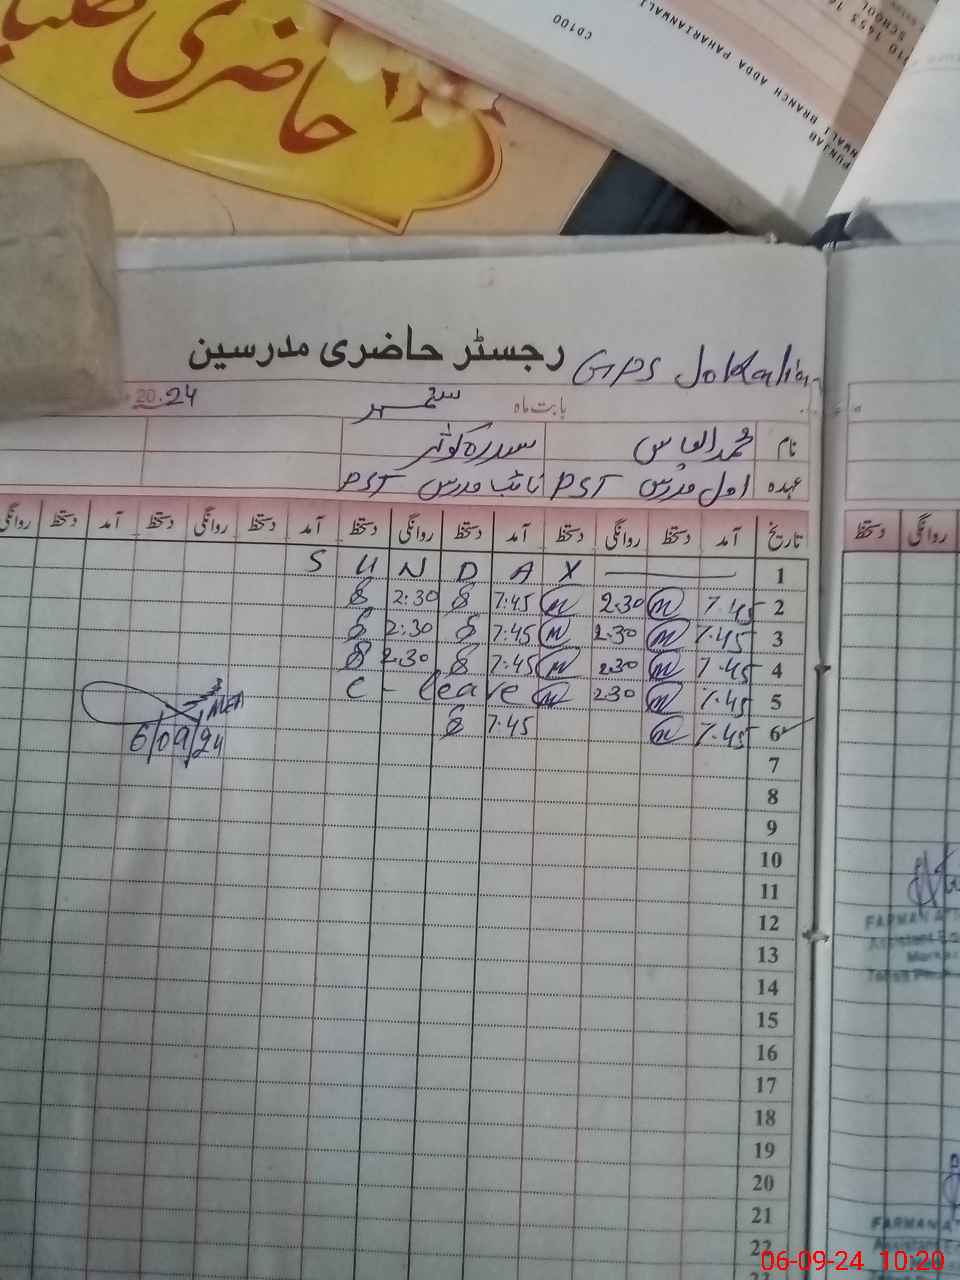 حاضری
CD100
BRANCH ADDA PAHARIANWALI
PUNJAB
SCHOOL
رجسٹر حاضری مدرسین GPS Jokalian
بابت ماہ ستمبر 2024
نام محمد الیاس سدرہ کوثر
عہدہ اول مدرس PST نائب مدرس PST
تاریخ آمد دستخط روانگی دستخط آمد دستخط روانگی دستخط آمد دستخط روانگی دستخط آمد دستخط روانگی
دستخط روانگی
1 S U N D A Y
2 7.45 2.30 7:45 2:30
3 7.45 2.30 7:45 2:30
4 7.45 2.30 7:45 2:30
5 7.45 2.30 C - leave
6 7.45 7:45
6/09/24
7
8
9
10
11
12
13
14
15
16
17
18
19
20
21
22
FARMAN A
Assistant E
Mark
FARMAN A
Assistant
06-09-24 10:20